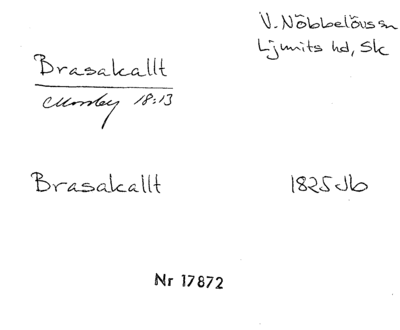 V. Nöbbelövs sn
Ljunits hd, Sk
Brasakallt
18:13
Brasakallt
1825 Jb
Nr 17872